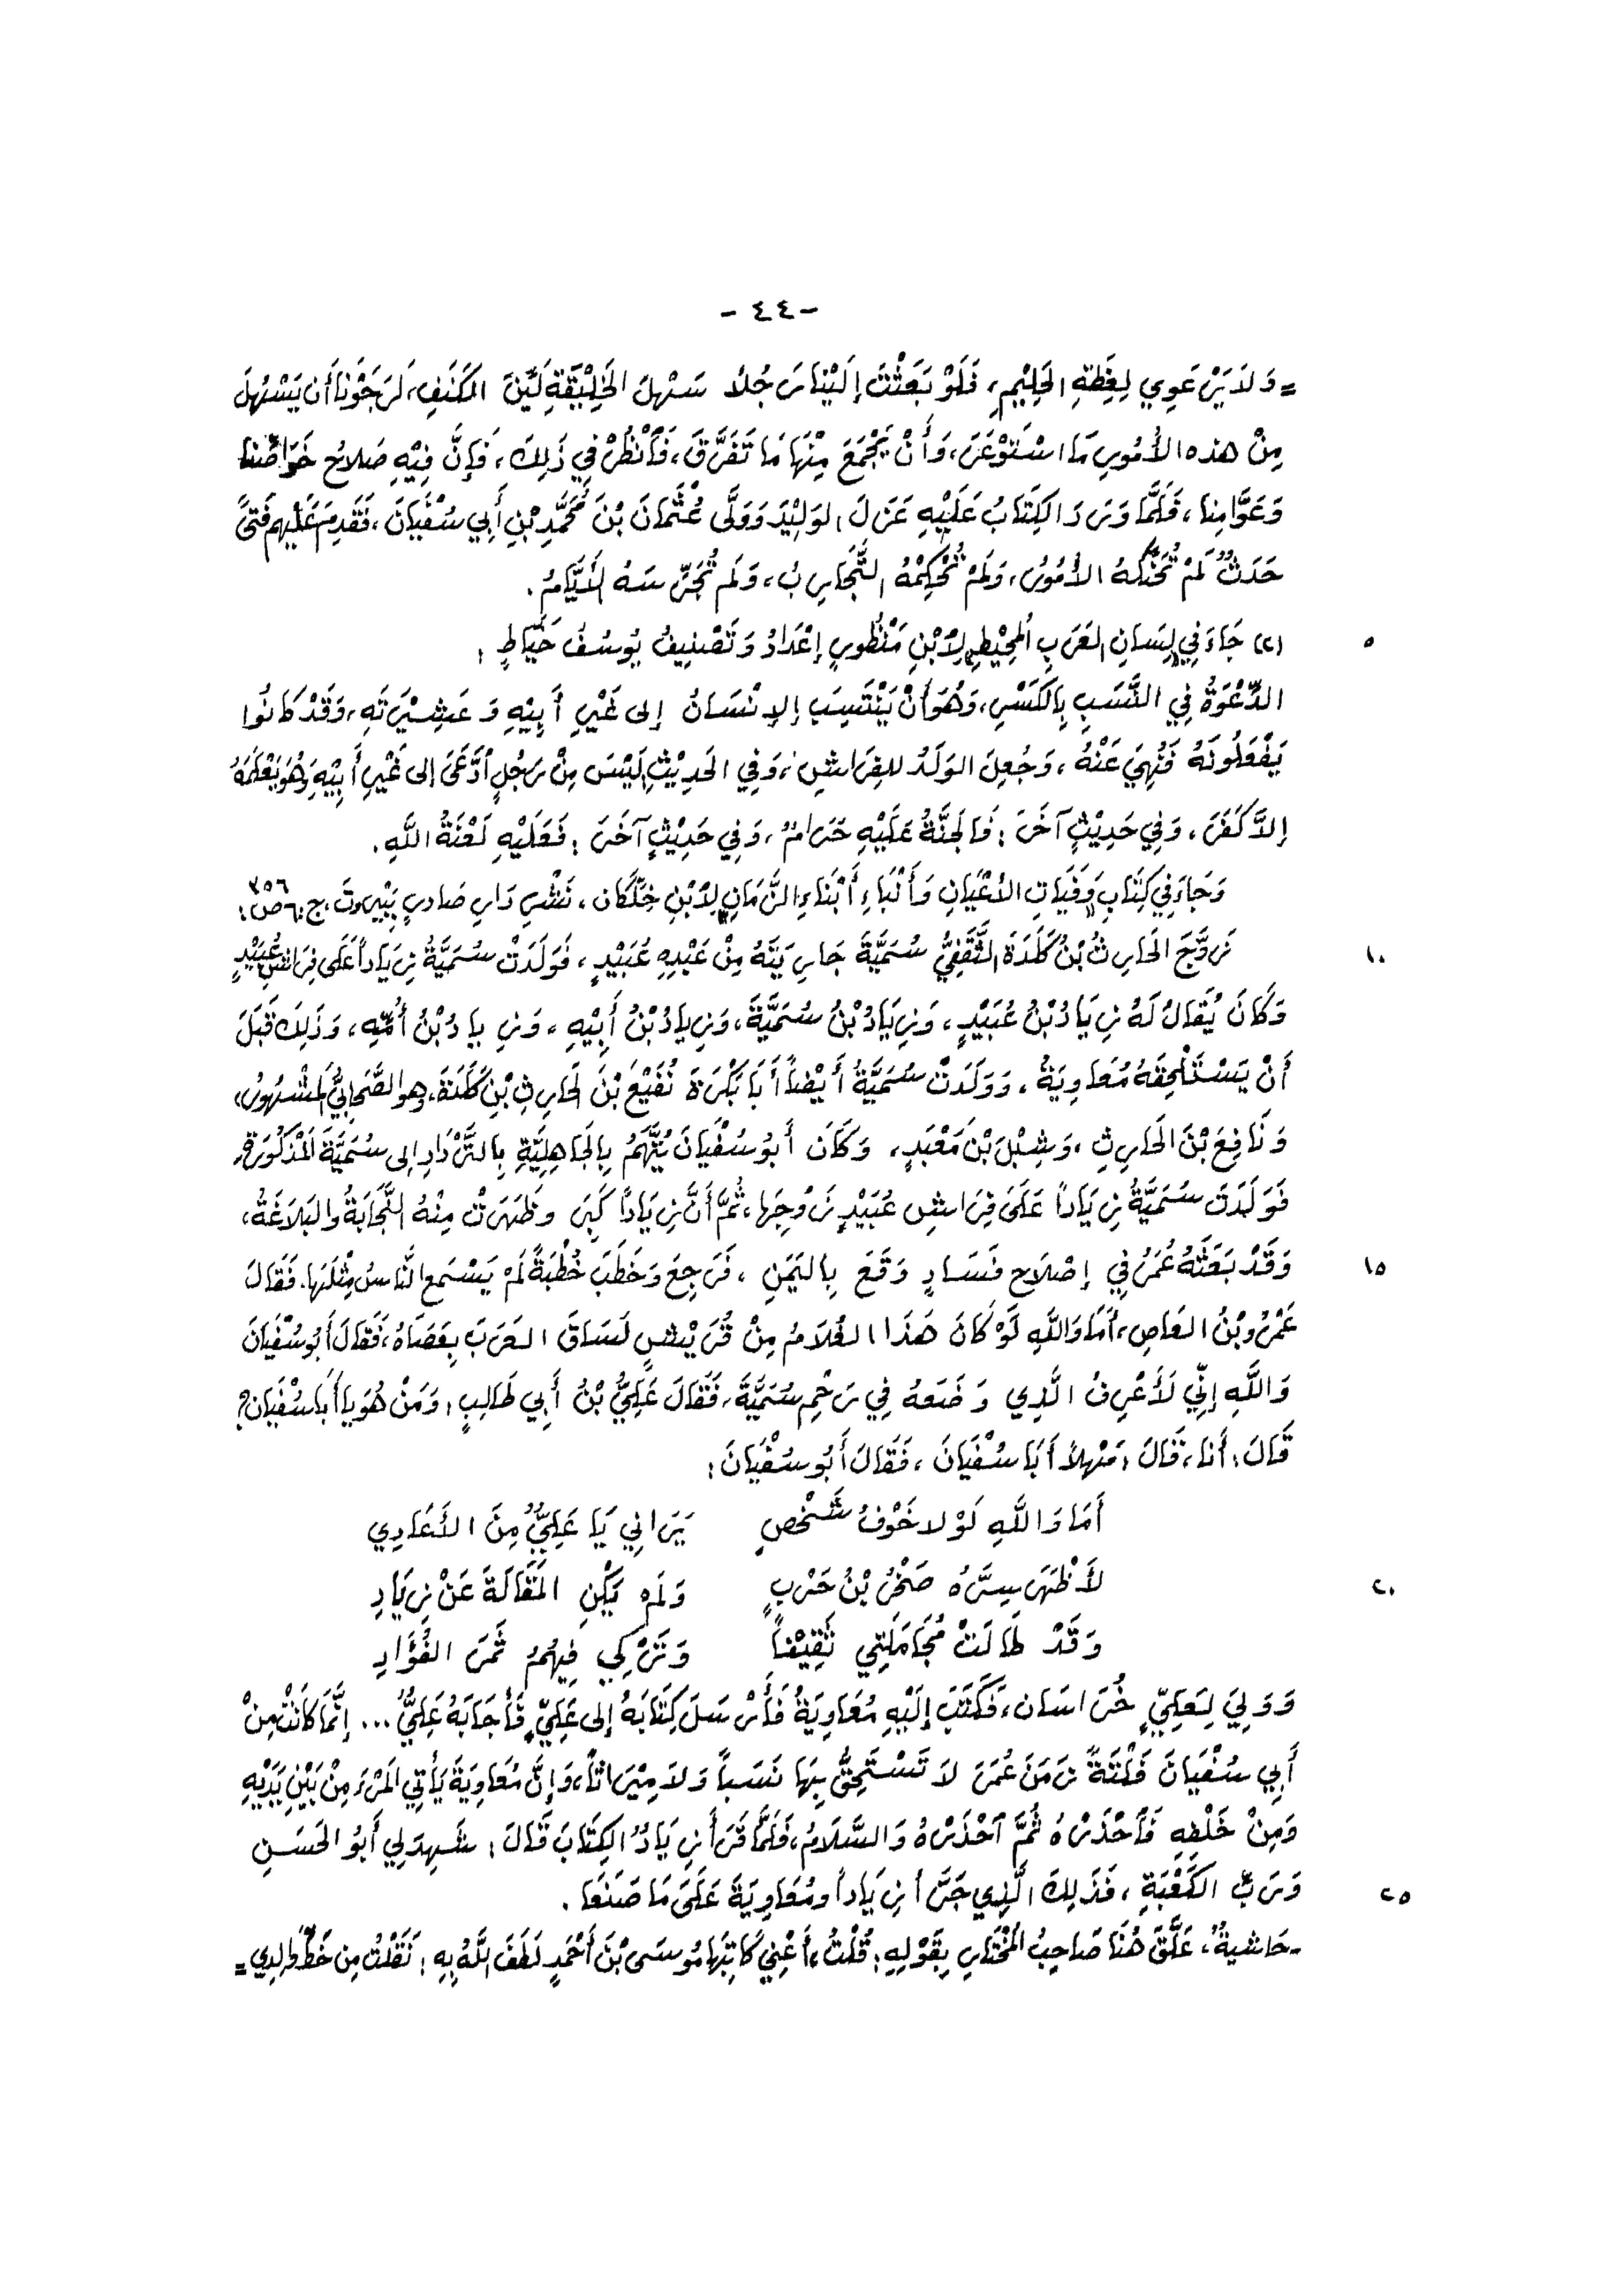 - ٤٤ -
= وَلاَ يَرْعَوِي لِغِظَةِ الحَلِيْمِ، فَلَوْ بَعَثْتَ إِلَيْنَا رَجُلاً سَهْلَ الخَلِيْقَةِ لَيِّنَ الكَنَفِ، لَرَجَوْنَا أَن يَسْهُلَ
مِنْ هذه الأُمُورِ مَا اسْتَوْعَرَ، وَأَنْ يَجْمَعَ مِنْهَا مَا تَفَرَّقَ، فَأَنْظُرْ فِي ذَلِكَ، فَإِنَّ فِيْهِ صَلاحُ خَوَاصِّنَا
وَعَوَّامِنَا، فَلَمَّا وَرَدَ الكِتَابُ عَلَيْهِ عَزَلَ الوَلِيْدَ وَوَلَّى عُثْمَانَ بْنَ مُحَمَّدِ بْنِ أَبِي سُفْيَانَ، فَقَدِمَ عَلَيْهِم فَتىً
حَدَثٌ لَمْ تُحَنِّكْهُ الأُمُورُ، وَلَمْ تُحْكِمْهُ التَّجَارِبُ، وَلَم تُجَرِّسهُ الأَيَّامُ.
(٢) جَاءَ فِي لِسَانِ العَرَبِ المُحِيْطِ لِأبْنِ مَنْظُورٍ إعْدَادُ وَتَصْنِيفُ يُوسُفُ خَيَّاطٍ :
٥
الدِّعْوَةُ فِي النَّسَبِ بِالكَسْرِ، وَهُوَ أَنْ يَنْتَسِبَ الإِنْسَانُ إلى غَيْرِ أَبِيْهِ وَعَشِيْرَتَهِ، وَقَدْ كَانُوا
يَفْعَلُونَهُ فَنُهِيَ عَنْهُ، وَجُعِلَ الوَلَدُ للفِرَاشِ، وَفِي الحَدِيْثِ لَيْسَ مِنْ رَجُلٍ أدَّعَىَ إلى غَيْرِ أَبِيْهِ وَهُوَ يَعْلَمُهُ
إلاَّ كَفَرَ، وَفِي حَدِيْثٍ آخَرَ: فَالجَنَّةُ عَلَيْهِ حَرَامٌ، وَفِي حَدِيْثٍ آخَرَ: فَعَلَيْهِ لَعْنَةُ اللَّهِ.
وَجَاءَ فِي كِتَابِ وَفَيَاتِ الأَعْيَانِ وَأَنْبَاءِ أَبْنَاءِ الزَّمَانِ لِأبْنِ خَلِّكَان، نَشْرِ دَارِ صَادِرٍ بَيْرُوتَ، ج: ٦ ص: ٣٥٦
زَوَّجَ الحَارِثُ بْنُ كَلَدَةَ الثَّقَفِيُّ سُمَيَّةَ جَارِيَتَهُ مِنْ عَبْدِهِ عُبَيْدٍ، فَوَلَدَتْ سُمَيَّةُ زِيَاداً عَلَى فِرَاشِ عُبَيْدٍ
١٠
وَكَانَ يُقَالُ لَهُ زِيَادُ بْنُ عُبَيْدٍ، وَزِيَادُ بْنُ سُمَيَّةَ، وَزِيادُ بْنُ أَبِيْهِ، وَزِيادُ بْنُ أُمِّهِ، وَذَلِكَ قَبْلَ
أَنْ يَسْتَلْحِقَهُ مُعَاوِيَةُ، وَوَلَدَتْ سُمَيَّةُ أَيْضاً أَبَا بَكْرَةَ نُفَيْعَ بْنَ الحَارِثِ بْنِ كَلَدَةَ، وهو الصَّحَابِيُّ المَشْهُورُ،
وَنَافِعَ بْنَ الحَارِثِ، وَشِبْلَ بْنَ مَعْبَدٍ، وَكَانَ أَبُو سُفْيَانَ يُتَّهَمُ بِالجَاهِلِيَّةِ بِالتَّرْدَادِ إلى سُمَيَّةَ المَذْكُورَةِ،
فَوَلَدَتَ سُمَيَّةُ زِيَاداً عَلَى فِرَاشِ عُبَيْدٍ زَوجِهَا، ثُمَّ أَنَّ زِيَاداً كَبِرَ وظَهَرَتْ مِنْهُ النَّجَابَةُ وَالبَلاَغَةُ،
وَقَدْ بَعَثَهُ عُمَرُ فِي إصْلاَحِ فَسَادٍ وَقَعَ بِاليَمَنِ، فَرَجِعَ وَخَطَبَ خُطْبَةً لَمْ يَسْمَعِ النَّاسُ مِثْلَهَا، فَقَالَ
١٥
عَمْرُو بْنُ العَاصِ، أَمَا وَاللَّهِ لَوْ كَانَ هَذَا الغُلاَمُ مِنْ قُرَيْشٍ لَسَاقَ العَرَبَ بِعَصَاهُ، فَقَالَ أَبُو سُفْيَانَ
وَاللَّهِ إِنِّي لَأَعْرِفُ الَّذِي وَضَعهُ فِي رَحْمِ سُمَيَّةَ، فَقَالَ عَلِيُّ بْنُ أَبِي طَالِبٍ: وَمَنْ هُوَ يا أَبَا سُفْيَانَ؟
قَالَ: أَنا، قَالَ: مَهْلاً أَبَا سُفْيَانَ، فَقَالَ أَبُو سُفْيَانَ:
أَمَا وَاللَّهِ لَوْلا خَوْفُ شَخْصٍ يَرَانِي يَا عَلِيٌّ مِنَ الأَعَادِي
لَأَظْهَرَ سِرَّهُ صَخْرُ بْنُ حَرْبٍ وَلَمْ يَكُنِ المَقَالَةَ عَنْ زِيَادِ
٢٠
وَقَدْ طَالَتْ مُجَامَلَتِي ثَقِيْفاً وَتَرْكِي فِيهُمُ ثَمَرَ الفُؤَادِ
وَوَلِيَ لِعَلِيٍّ خُرَاسَانَ، فَكَتَبَ إِلَيْهِ مُعَاوِيَةُ فَأَرْسَلَ كِتَابَهُ إلى عَلِيٍّ فَأَجَابَهُ عَلِيٌّ ... إنَّمَا كَانَتْ مِنْ
أَبِي سُفْيَانَ فَلْتَةً زَمَنَ عُمَرَ لاَ تَسْتَحِقُّ بِهَا نَسَباً وَلاَ مِيْرَاثاً، وَإِنَّ مُعَاوِيَةَ يَأتِي المَرْءَ مِنْ بَيْنِ يَدَيْهِ
وَمِنْ خَلْفِهِ فَأحْذَرْهُ ثُمَّ آحْذَرْهُ وَالسَّلاَمُ، فَلَمَّا قَرَأَ زِيَادٌ الكِتَابَ قَالَ: شَهِدَ لِي أَبُو الحَسَنِ
وَرَبِّ الكَعْبَةِ، فَذَلِكَ الَّذِي جَرَّأ زِيَاداً ومُعَاوِيَةَ عَلَى مَا صَنَعَا.
٢٥
- حَاشيةٌ، عَلَّقَ هُنَا صَاحِبُ المُخْتَارِ بِقَوْلِهِ: قُلْتُ، أَعْنِي كَاتِبَهَا مُوسَى بْنَ أَحْمَدٍ لَطَفَ اللَّهُ بِهِ: نَقَلْتُ مِن خَطِّ وَالِدِي =